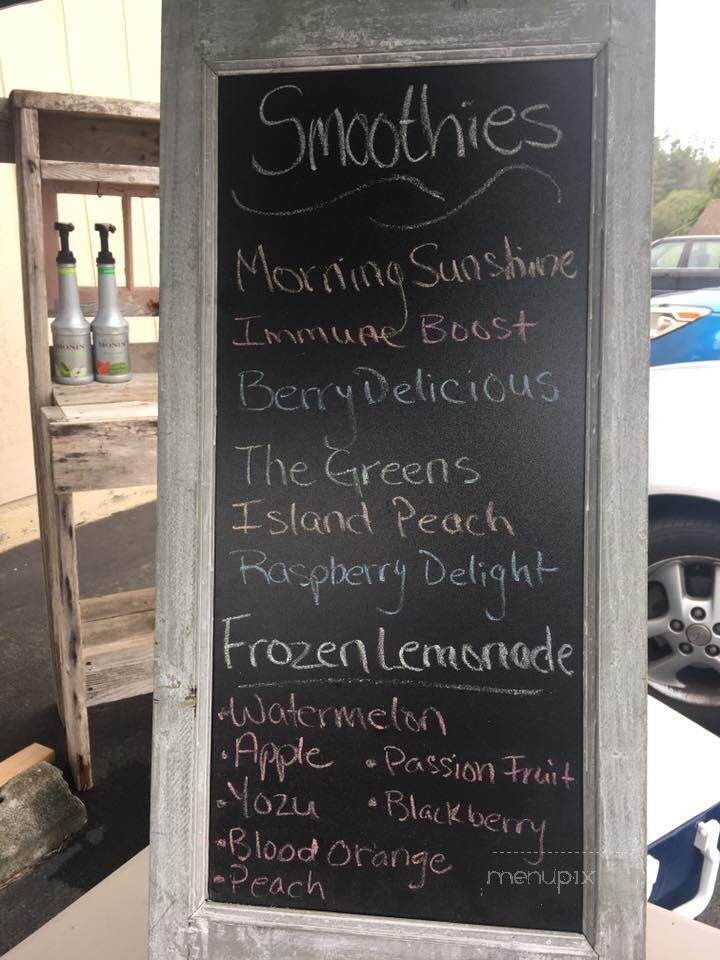 Smoothies
Morning Sunshine
Immune Boost
Berry Delicious
The Greens
Island Peach
Raspberry Delight
Frozen Lemonade
•Watermelon
•Apple •Passion Fruit
•Yozu •Blackberry
•Blood orange
•Peach
menupix
MONIN MONIN